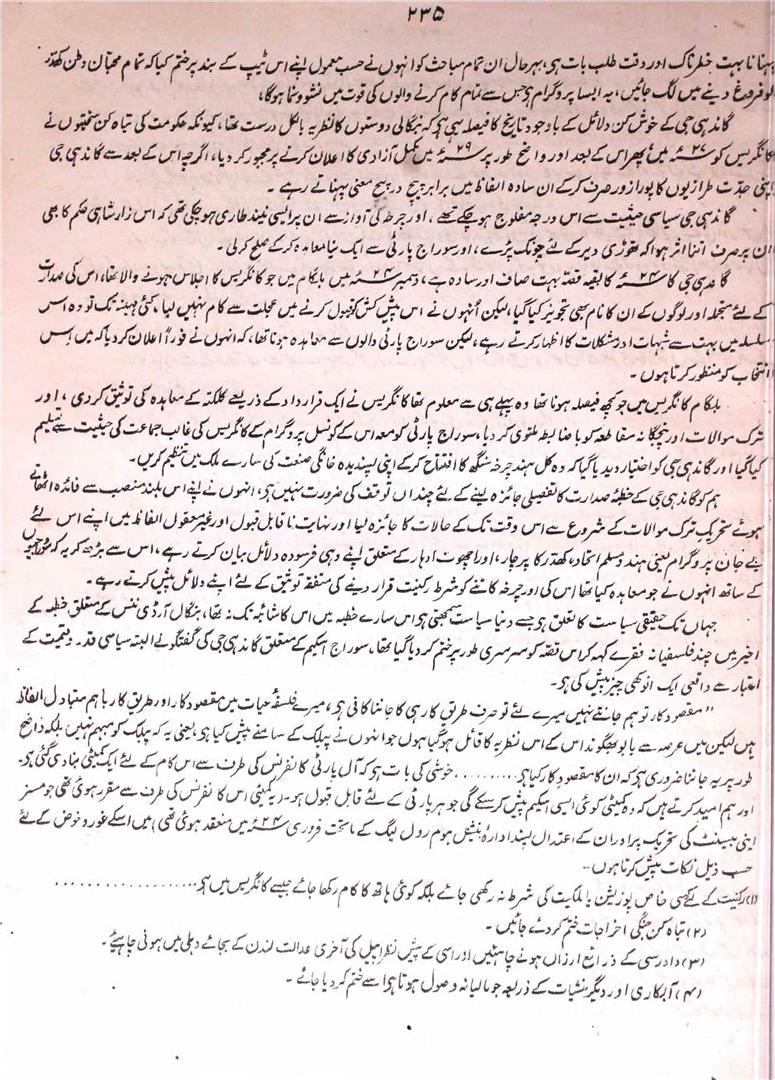 ۲۳۵
پہنانا بہت خطرناک اور دقت طلب بات ہی، بہرحال ان تمام مباحث کو انہوں نے حسب معمول اپنے اس ٹیپ کے بند پر ختم کیا کہ تمام محبّان وطن کھدّر
کو فروغ دینے میں لگ جائیں، یہ ایسا پروگرام ہی جس سے تمام کام کرنے والوں کی قوت میں نشو و نما ہوگا،
گاندہی جی کے خوش کن دلائل کے باوجود تاریخ کا فیصلہ یہی ہے کہ بنگالی دوستوں کا نظریہ بالکل درست تھا، کیونکہ حکومت کی تباہ کن سختیوں نے
کانگریس کو ۲۷ء میں پھر اس کے بعد اور واضح طور پر ۲۹ء میں مکمل آزادی کا اعلان کرنے پر مجبور کر دیا، اگرچہ اس کے بعد سے گاندہی جی
اپنی جدّت طرازیوں کا پورا زور صرف کرکے ان سادہ الفاظ میں برابر پیچ در پیچ معنی پہناتے رہے ۔
گاندہی جی سیاسی حیثیت سے اس درجہ مفلوج ہو چکے تھے، اور چرخہ کی آواز سے ان پر ایسی نیند طاری ہو چکی تھی کہ اس زار شاہی حکم کا بھی
ان پر صرف اتنا اثر ہوا کہ تھوڑی دیر کے لئے چونک پڑے، اور سوراج پارٹی سے ایک نیا معاہدہ کرکے صلح کر لی ۔
گاندہی جی کا ۲۴ء کا بقیہ قصّہ بہت صاف اور سادہ ہے، دسمبر ۲۴ء میں بلگام میں جو کانگریس کا اجلاس ہونے والا تھا، اس کی صدارت
کے لئے منجملہ اور لوگوں کے ان کا نام بھی تجویز کیا گیا، لیکن اُنہوں نے اس پیش کش کو قبول کرنے میں عجلت سے کام نہیں لیا، کئی مہینہ تک تو وہ اس
سلسلہ میں بہت سے شبہات اور مشکلات کا اظہار کرتے رہے، لیکن سوراج پارٹی والوں سے معاہدہ ہونا تھا، کہ انہوں نے فوراً اعلان کر دیا کہ میں اس
انتخاب کو منظور کرتا ہوں ۔
بلگام کانگریس میں جو کچھ فیصلہ ہونا تھا وہ پہلے ہی سے معلوم تھا کانگریس نے ایک قرارداد کے ذریعے کلکتہ کے معاہدہ کی توثیق کر دی، اور
ترک موالات اور پنچگانہ مقاطعہ کو باضابطہ ملتوی کر دیا، سوراج پارٹی کو معہ اس کے کونسل پروگرام کے کانگریس کی غالب جماعت کی حیثیت سے تسلیم
کیا گیا اور گاندہی جی کو اختیار دیدیا گیا کہ وہ کل ہند چرخہ سنگھ کا افتتاح کرکے اپنی پسندیدہ خانگی صنعت کی سارے ملک میں تنظیم کریں۔
ہم کو گاندہی جی کے خطبۂ صدارت کا تفصیلی جائزہ لینے کے لئے چنداں توقف کی ضرورت نہیں ہی، انہوں نے اپنے اس بلند منصب سے فائدہ اٹھاتے
ہوئے تحریک ترک موالات کے شروع سے اس وقت تک کے حالات کا جائزہ لیا اور نہایت ناقابل قبول اور غیر معقول الفاظ میں اپنے اس لئے
بے جان پروگرام یعنی ہندو مسلم اتحاد، کھدّر کا پرچار، اور اچھوت ادہار کے متعلق اپنے وہی فرسودہ دلائل بیان کرتے رہے، اس سے بڑھ کر یہ کہ سوراجیوں
کے ساتھ انہوں نے جو معاہدہ کیا تھا اس کی اور چرخہ کاتنے کو شرط رکنیت قرار دینے کی متفقہ توثیق کے لئے اپنے دلائل پیش کرتے رہے ۔
جہاں تک حقیقی سیاست کا تعلق ہو جسے دنیا سیاست سمجھتی ہو اس سارے خطبہ میں اس کا شائبہ تک نہ تھا، بنگال آرڈی ننس کے متعلق خطبہ کے
اخیر میں چند فلسفیانہ فقرے کہہ کر اس قصّہ کو سرسری طور پر ختم کر دیا گیا تھا، سوراج اسکیم کے متعلق گاندہی جی کی گفتگو نے البتہ سیاسی قدر و قیمت کے
اعتبار سے واقعی ایک انوکھی چیز پیش کی ہو۔
"مقصود کار تو ہم جانتے نہیں میرے لئے تو صرف طریق کار ہی کا جاننا کافی ہو، میرے فلسفۂ حیات میں مقصود کار اور طریق کار باہم متبادل الفاظ
ہیں لیکن میں عرصہ سے بابو بھگوند اس کے اس نظریہ کا قائل ہو گیا ہوں جو انہوں نے پبلک کے سامنے پیش کیا ہو، یعنی یہ کہ پبلک کو مبہم نہیں بلکہ واضح
طور پر یہ جاننا ضروری ہو کہ ان کا مقصود کار کیا ہو.......... خوشی کی بات ہو کہ آل پارٹی کانفرنس کی طرف سے اس کام کے لئے ایک کمیٹی بنا دی گئی ہو۔
اور ہم امید کرتے ہیں کہ وہ کمیٹی کوئی ایسی اسکیم پیش کر سکے گی جو ہر پارٹی کے لئے قابل قبول ہو۔ (یہ کمیٹی اس کانفرنس کی طرف سے مقرر ہوئی تھی جو مسز
اینی بیسنٹ کی تحریک پر اور ان کے اعتدال پسند ادارہ نیشنل ہوم رول لیگ کے ماتحت فروری ۲۴ء میں منعقد ہوئی تھی) میں اسکے غور و خوض کے لئے
حسب ذیل نکات پیش کرتا ہوں۔
(۱) رکنیت کے لئے کسی خاص پوزیشن یا ملکیت کی شرط نہ رکھی جائے بلکہ کوئی ہاتھ کا کام رکھا جائے جیسے کانگریس میں ہی ..................
(۲) تباہ کن جنگی اخراجات ختم کر دے جائیں ۔
(۳) داد رسی کے ذرائع ارزاں ہونے چاہئیں اور اسی کے پیش نظر اپیل کی آخری عدالت لندن کے بجائے دہلی میں ہونی چاہیئے۔
(۴) آبکاری اور دیگر منشیات کے ذریعہ جو مالیانہ وصول ہوتا ہو اسے ختم کر دیا جائے ۔